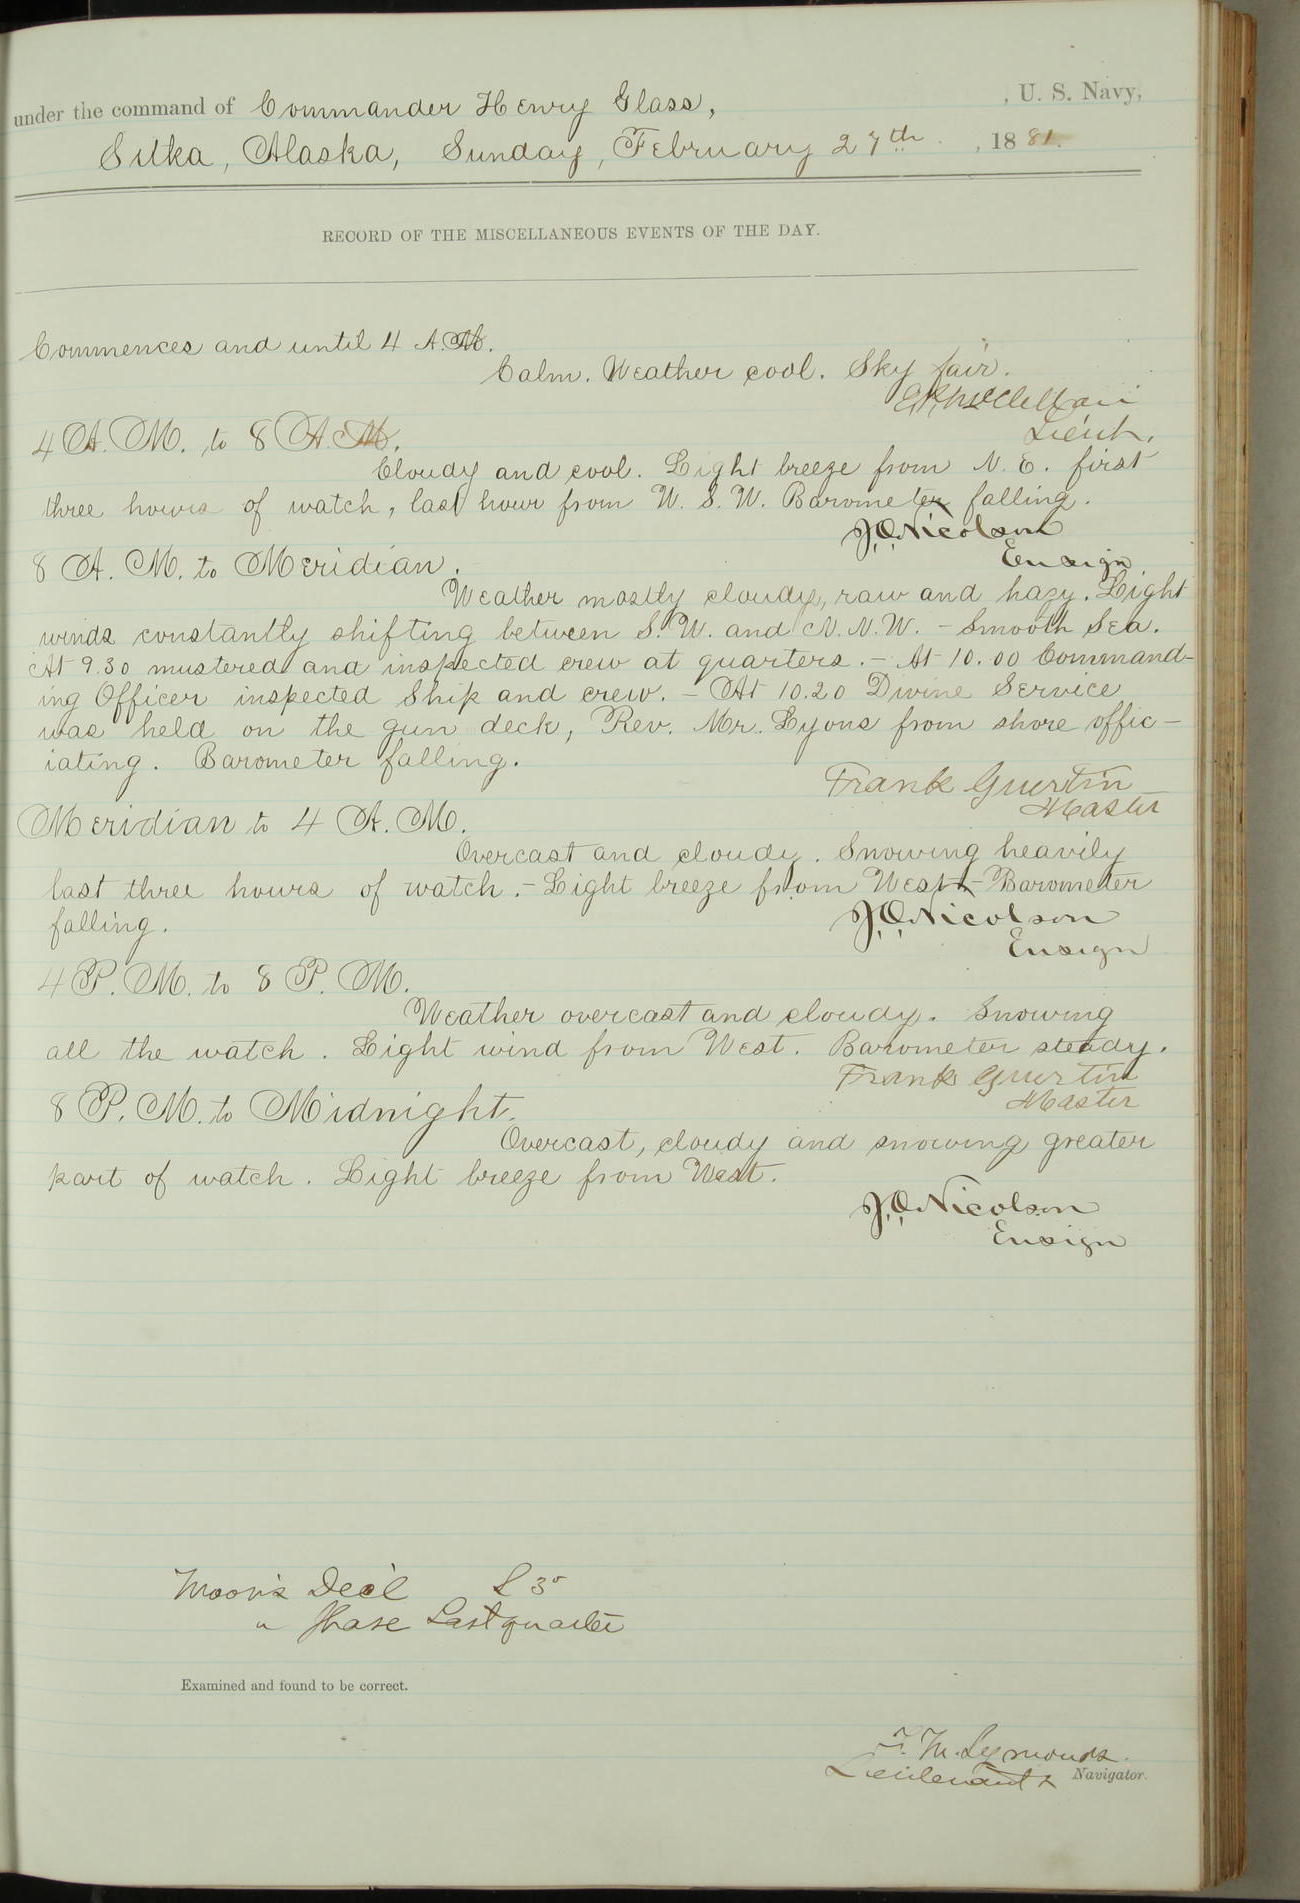 under the command of Commander Henry Glass, , U. S. Navy,
Sitka, Alaska, Sunday, February 27th , 1881.
RECORD OF THE MISCELLANEOUS EVENTS OF THE DAY.
Commences and until 4 A.M.
Calm. Weather cool. Sky fair.
McClellan
Lieut.
4 A. M. to 8 A. M.
Cloudy and cool. Light breeze from N. E. first
three hours of watch, last hour from W. S. W. Barometer falling.
J.O. Nicolson
Ensign
8 A. M. to Meridian.
Weather mostly cloudy, raw and hazy. Light
winds constantly shifting between S. W. and N. N. W. - Smooth Sea.
At 9.30 mustered and inspected crew at quarters. - At 10.00 Command-
ing Officer inspected Ship and crew. - At 10.20 Divine Service
was held on the gun deck, Rev. Mr. Lyons from shore offic-
iating. Barometer falling.
Frank Guertin
Master
Meridian to 4 A. M.
Overcast and cloudy. Snowing heavily
last three hours of watch. - Light breeze from West - Barometer
falling.
J.O. Nicolson
Ensign
4 P. M. to 8 P. M.
Weather overcast and cloudy. Snowing
all the watch. Light wind from West. Barometer steady.
Frank Guertin
Master
8 P. M. to Midnight.
Overcast, cloudy and snowing greater
part of watch. Light breeze from West.
J.O. Nicolson
Ensign
Moon's Dec'l
" Phase Last quarter
Examined and found to be correct.
F. M. Symonds.
Lieutenant & Navigator.